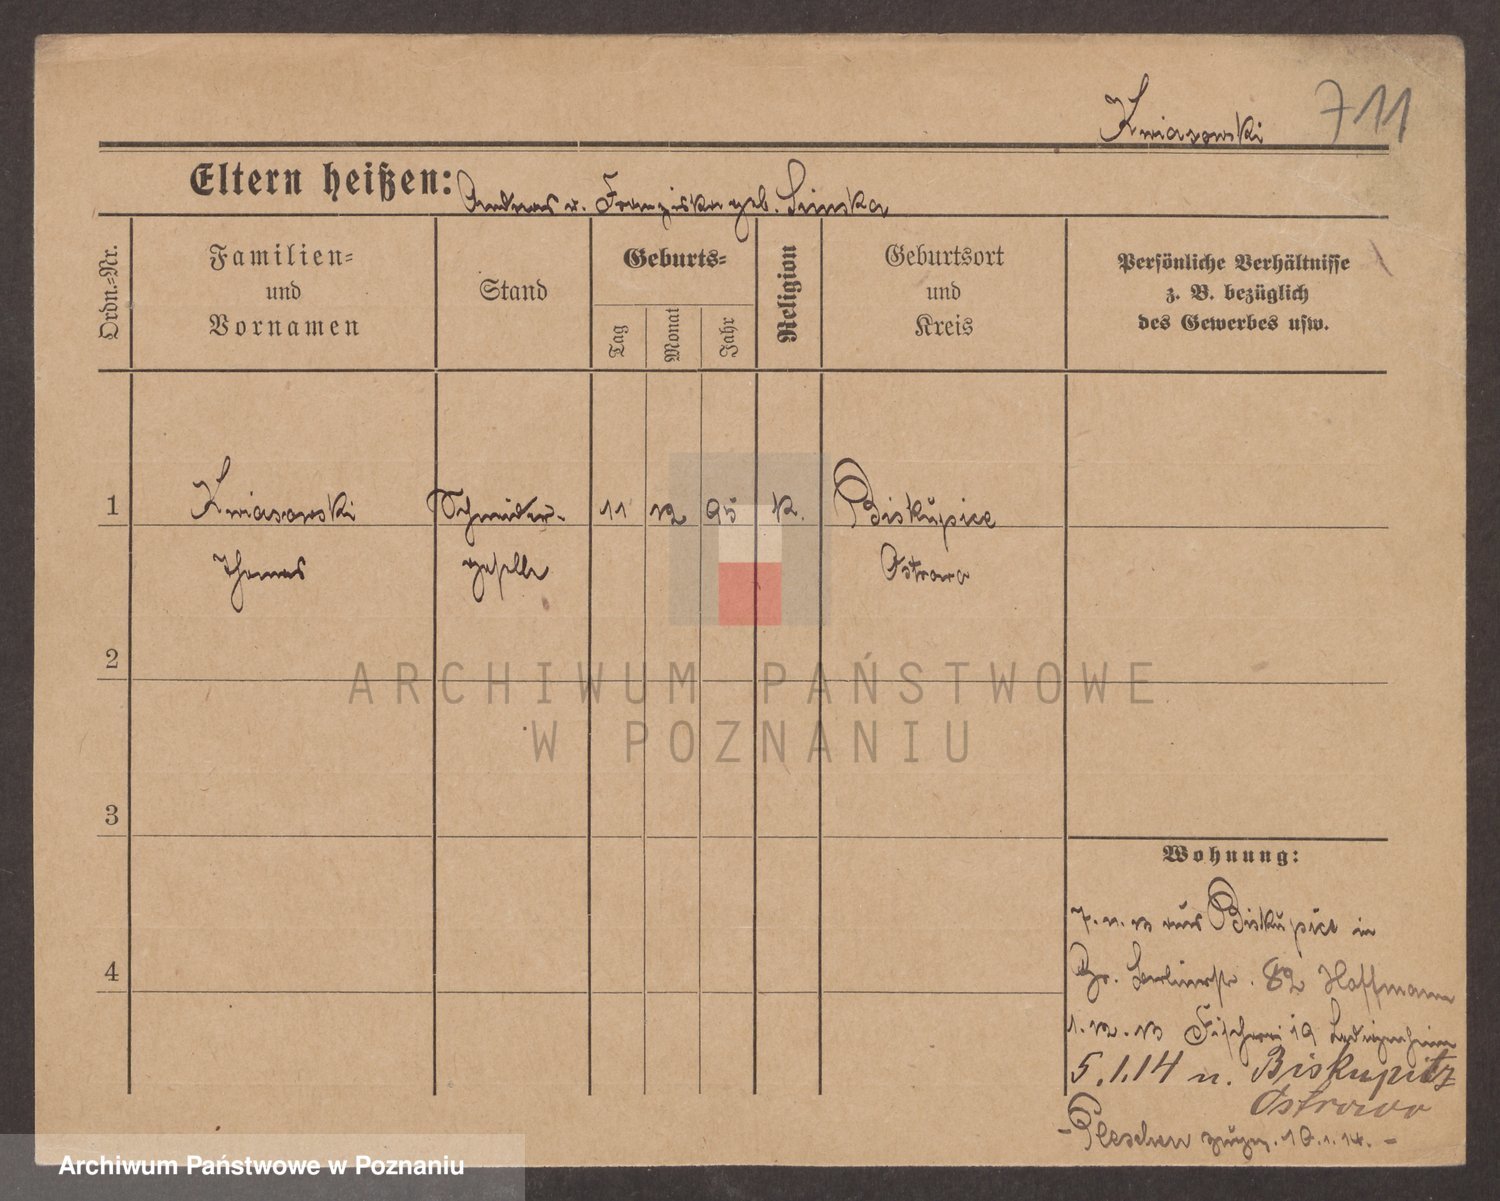 Kwiasowski 711
Eltern heißen: Andreas u. Franziska geb. Simska
Ordn.-Nr.
Familien-
und
Vornamen
Stand
Geburts-
Tag
Monat
Jahr
Religion
Geburtsort
und
Kreis
Persönliche Verhältnisse
z. B. bezüglich
des Gewerbes usw.
1 Kwiasowski Schneider- 11 12 95 k. Biskupice
Thomas geselle Ostrowo
2
ARCHIWUM PAŃSTWOWE
W POZNANIU
3
Wohnung:
7. 11. 13 aus Biskupice in
4
Gr. Berlinerstr. 82 Hoffmann
1. 12. 13 Fischerei 19 Ledigenheim
5.1.14 n. Biskupitz
Ostrowo
- Pleschen 10.1.14. -
Archiwum Państwowe w Poznaniu